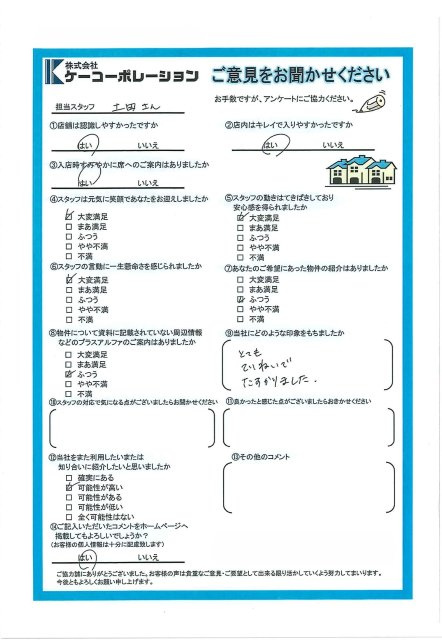 株式会社
ケーコーポレーション ご意見をお聞かせください
担当スタッフ 土田さん お手数ですが、アンケートにご協力ください。
①店舗は認識しやすかったですか ②店内はキレイで入りやすかったですか
はい いいえ はい いいえ
③入店時すみやかに席へのご案内はありましたか
はい いいえ
④スタッフは元気に笑顔であなたをお迎えしましたか
☑ 大変満足
□ まあ満足
□ ふつう
□ やや不満
□ 不満
⑤スタッフの動きはてきぱきしており
安心感を得られましたか
☑ 大変満足
□ まあ満足
□ ふつう
□ やや不満
□ 不満
⑥スタッフの言動に一生懸命さを感じられましたか
☑ 大変満足
□ まあ満足
□ ふつう
□ やや不満
□ 不満
⑦あなたのご希望にあった物件の紹介はありましたか
□ 大変満足
□ まあ満足
☑ ふつう
□ やや不満
□ 不満
⑧物件について資料に記載されていない周辺情報
などのプラスアルファのご案内はありましたか
□ 大変満足
□ まあ満足
☑ ふつう
□ やや不満
□ 不満
⑨当社にどのような印象をもちましたか
とても
ていねいで
たすかりました.
⑩スタッフの対応で気になる点がございましたらお聞かせください
⑪良かったと感じた点がございましたらおきかせください
⑫当社をまた利用したいまたは
知り合いに紹介したいと思いましたか
□ 確実にある
☑ 可能性が高い
□ 可能性がある
□ 可能性が低い
□ 全く可能性はない
⑬その他のコメント
⑭ご記入いただいたコメントをホームページへ
掲載してもよろしいでしょうか?
(お客様の個人情報は十分に配慮致します)
はい いいえ
ご協力誠にありがとうございました。お客様の声は貴重なご意見・ご要望として出来る限り活かしていくよう努力してまいります。
今後ともよろしくお願い申し上げます。